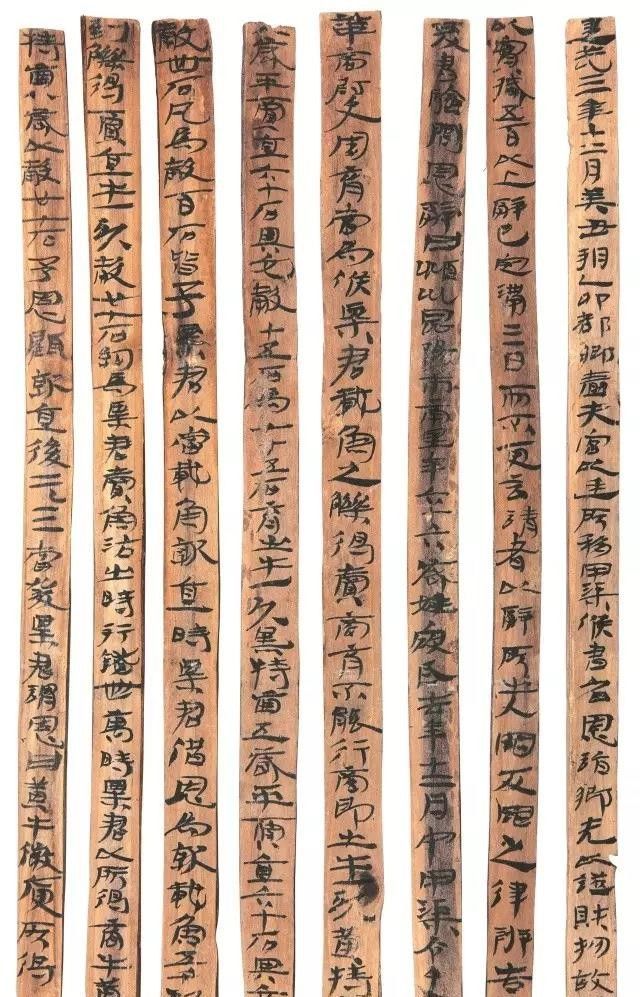 建武三年十二月癸丑朔乙卯都鄉嗇夫宮以廷所移甲渠候書召恩詣鄉先以證財物故
以實臧五百以上辭已定滿三日而不更言請者以辭所出入罪反罪之律辨告
爰書驗問恩辭曰潁川昆陽市南里年六十六歲姓寇氏去年十二月中甲渠令
華商尉史周育當為候粟君載魚之觻得賣商育不能行商即出牛一頭黃特
八歲平賈直六十石與它穀十五石為七十五石育出牛一頭黑特齒五歲平賈直六十石與它
穀卌石凡為穀百石皆予粟君以當載魚就直時粟君借恩為就載魚五
到觻得賈直牛一頭穀廿七石約為粟君賣魚沽出時行錢卌萬時粟君以所得商牛黃
特齒八歲以穀廿七石予恩顧就直後二三當發粟君謂恩曰黃牛微庾所得